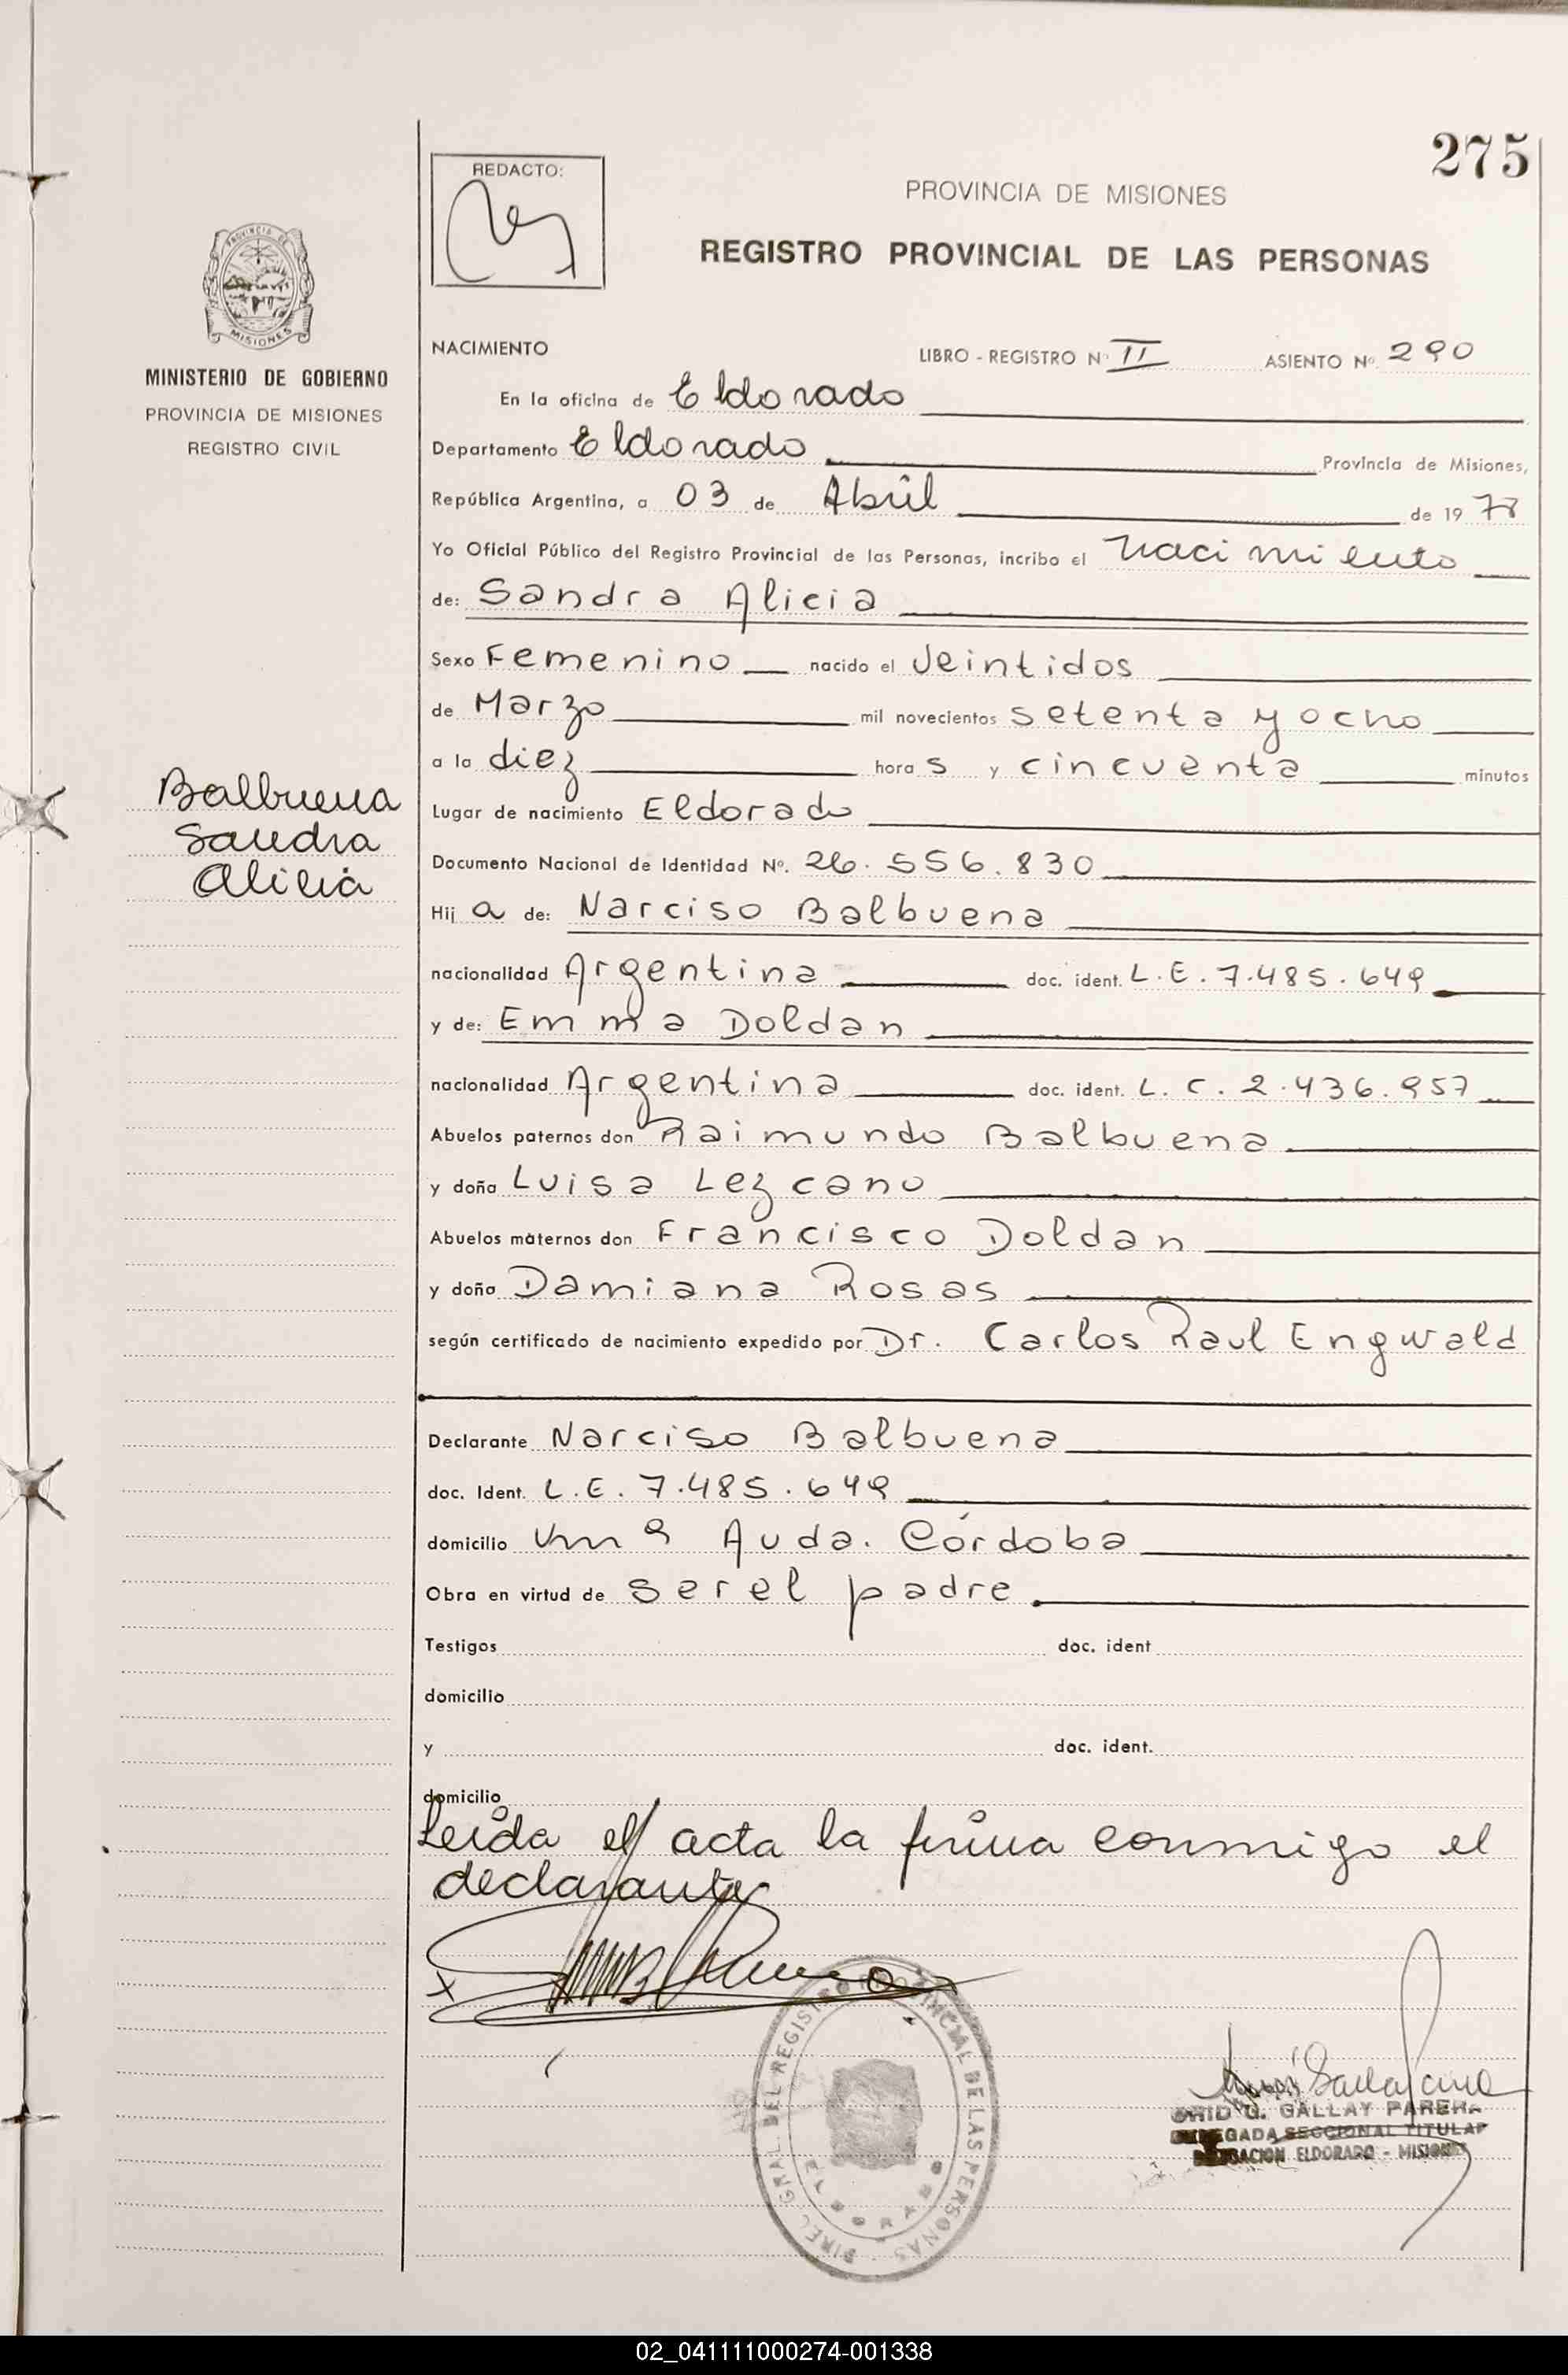 275
REDACTO:
PROVINCIA DE MISIONES
REGISTRO PROVINCIAL DE LAS PERSONAS
PROVINCIA DE
MISIONES
MINISTERIO DE GOBIERNO
PROVINCIA DE MISIONES
REGISTRO CIVIL
NACIMIENTO LIBRO - REGISTRO Nº II ASIENTO Nº 290
En la oficina de Eldorado
Departamento Eldorado Provincia de Misiones,
República Argentina, a 03 de Abril de 1978
Yo Oficial Público del Registro Provincial de las Personas, incribo el nacimiento
de: Sandra Alicia
Sexo Femenino nacido el Veintidos
de Marzo mil novecientos setenta y ocho
a la diez horas y cincuenta minutos
Balbuena
Sandra
Alicia
Lugar de nacimiento Eldorado
Documento Nacional de Identidad Nº. 26.556.830
Hija de: Narciso Balbuena
nacionalidad Argentina doc. ident. L.E. 7.485.649
y de: Emma Doldan
nacionalidad Argentina doc. ident. L.C. 2.436.957
Abuelos paternos don Raimundo Balbuena
y doña Luisa Lezcano
Abuelos maternos don Francisco Doldan
y doña Damiana Rosas
según certificado de nacimiento expedido por Dr. Carlos Raul Engwald
Declarante Narciso Balbuena
doc. Ident. L.E. 7.485.649
domicilio Km 9 Avda. Córdoba
Obra en virtud de ser el padre
Testigos doc. ident
domicilio
y doc. ident.
domicilio
Leída el acta la firma conmigo el
declarante
DIREC. GRAL. DEL REGISTRO PROVINCIAL DE LAS PERSONAS
ELDORADO
G. GALLAY PARERA
DELEGADA SECCIONAL TITULAR
DELEGACION ELDORADO - MISIONES
02_041111000274-001338